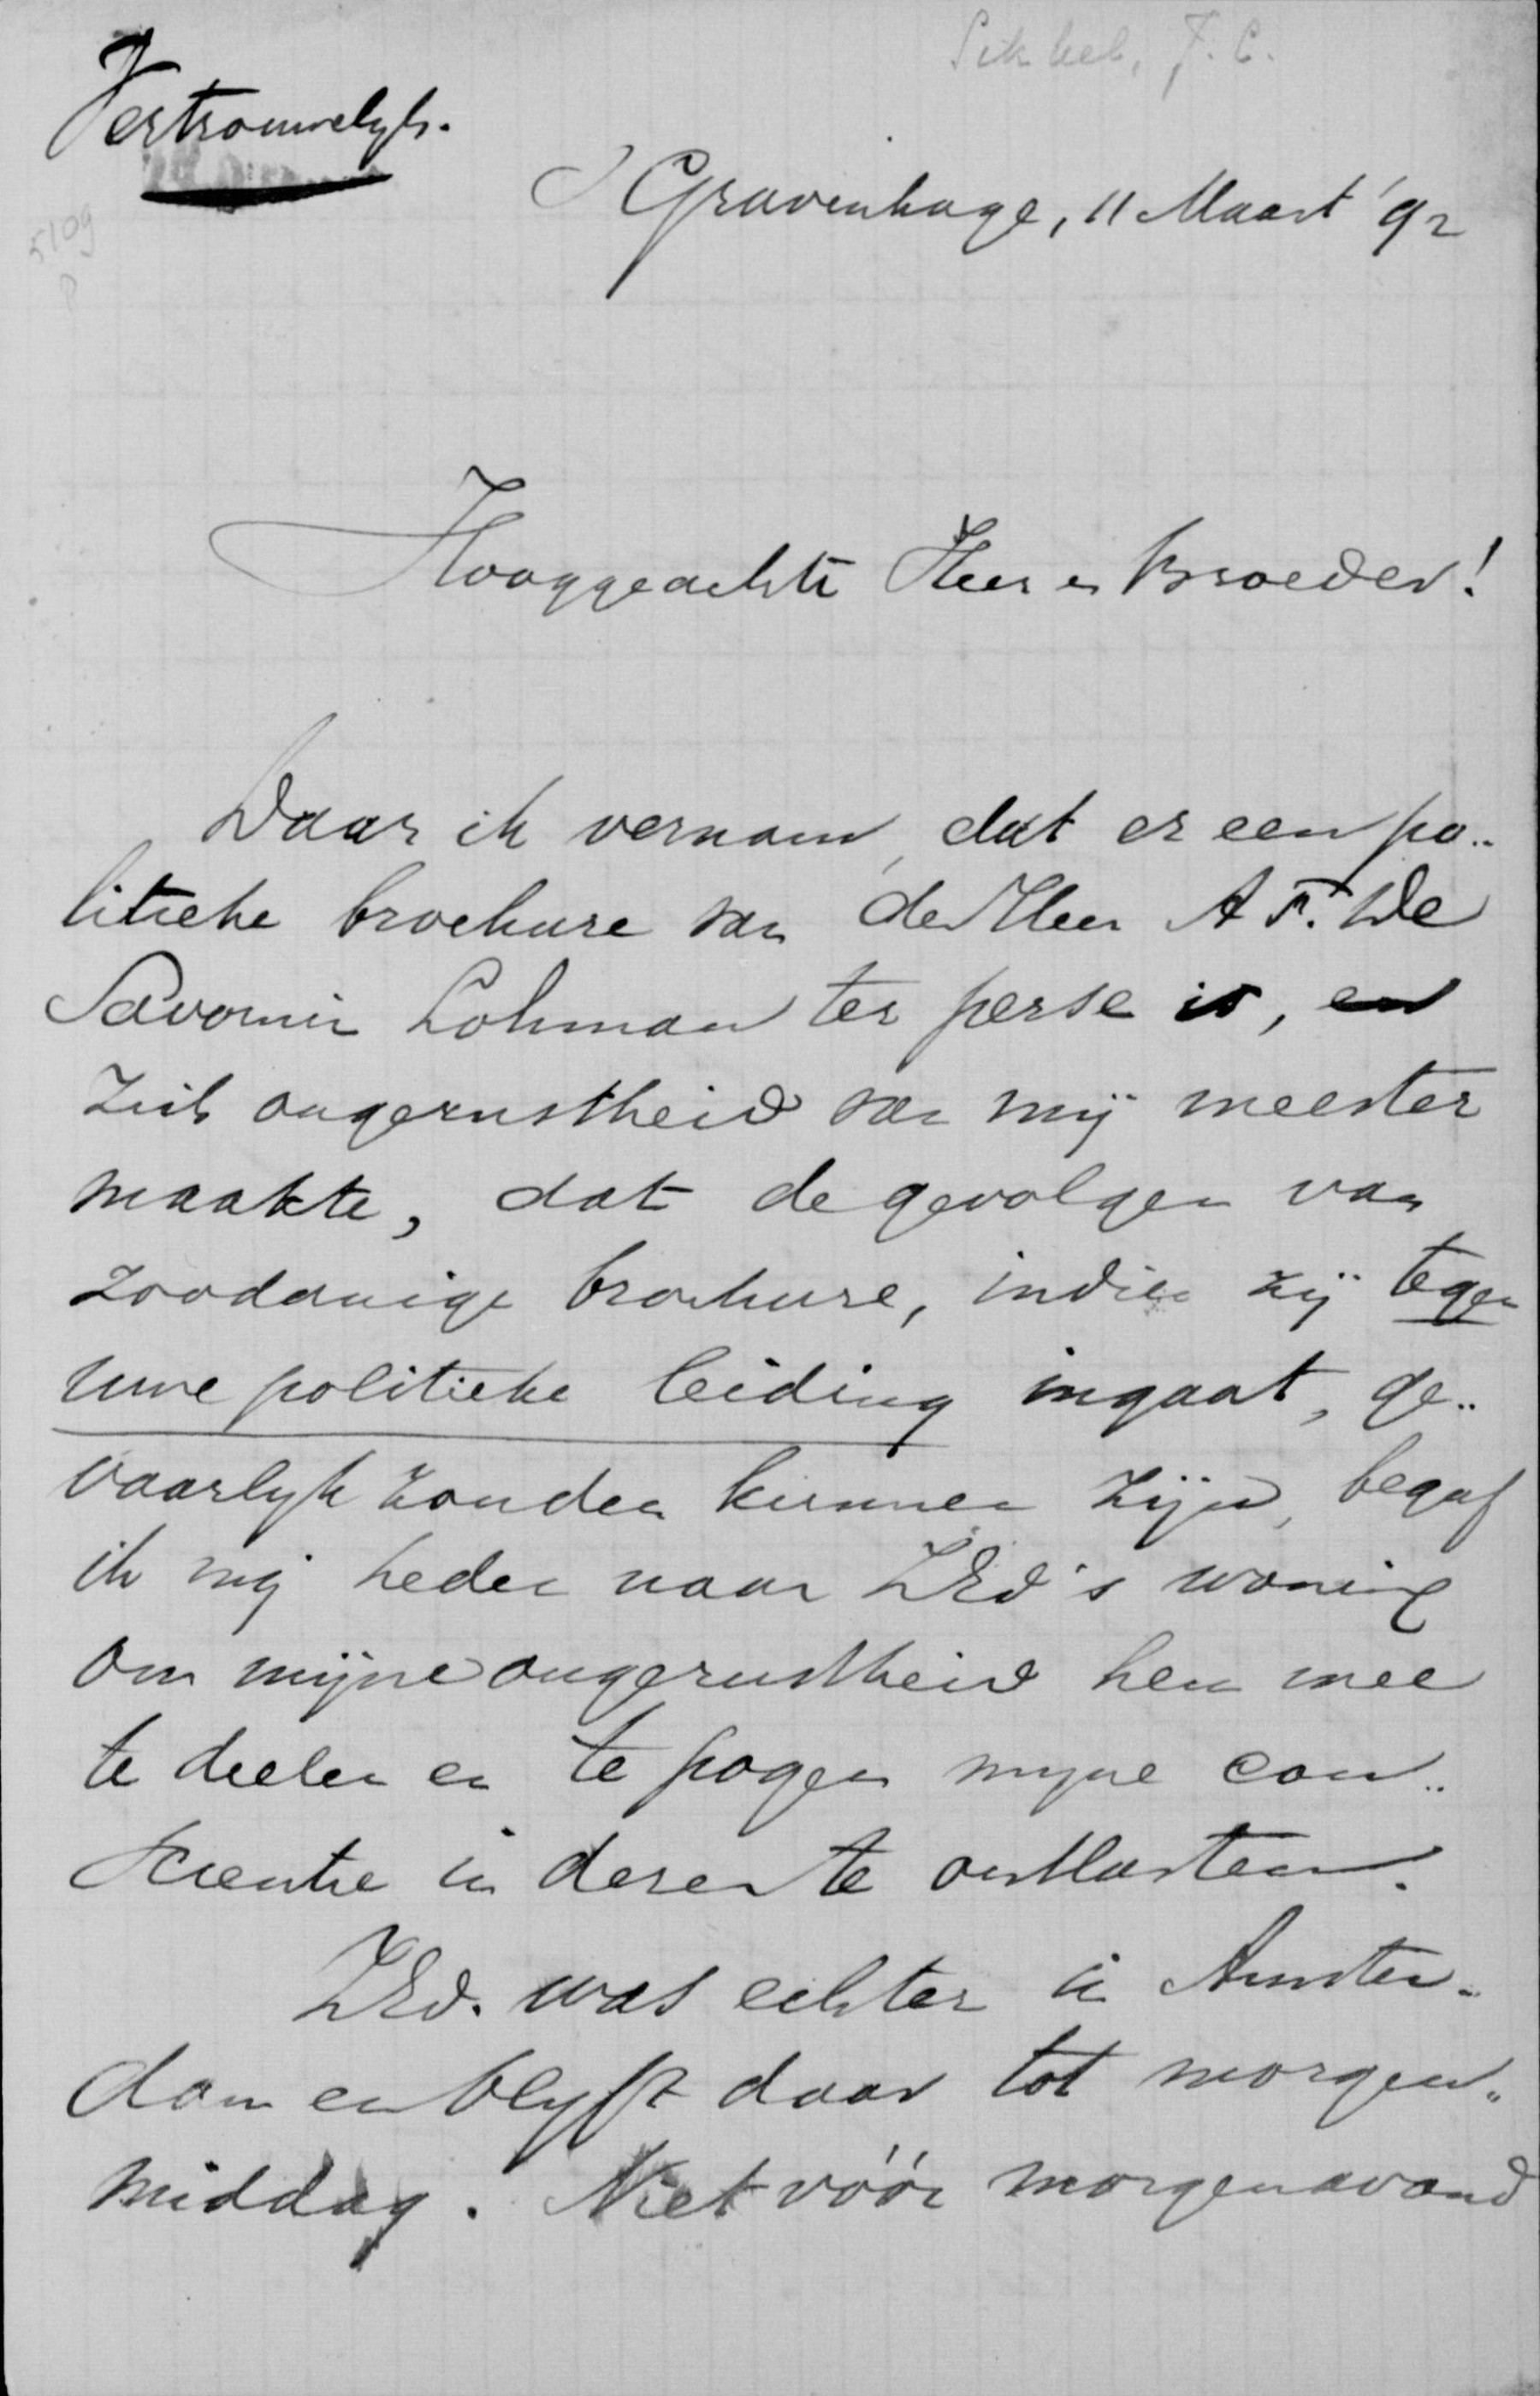 Sikkel, J. C.
Vertrouwelyk.
5109
'S Gravenhage, 11 Maart '92
Hooggeachte Heer en Broeder!
Daar ik vernam, dat er een po..
litieke brochure van den Heer A F. De
Savornin Lohman ter perse is, en
zich ongerustheid van mij meester
maakte, dat de gevolgen van
zoodanige brochure, indien zij tegen
uwe politieke leiding ingaat, ge..
vaarlyk zouden kunnen zijn, begaf
ik mij heden naar ZEd's woning
om mijne ongerustheid hem mee
te deelen en te pogen myne con..
scientie in dezen te ontlasten.
ZEd. was echter in Amster..
dam en blyft daar tot morgen..
middag. Niet vóór morgenavond